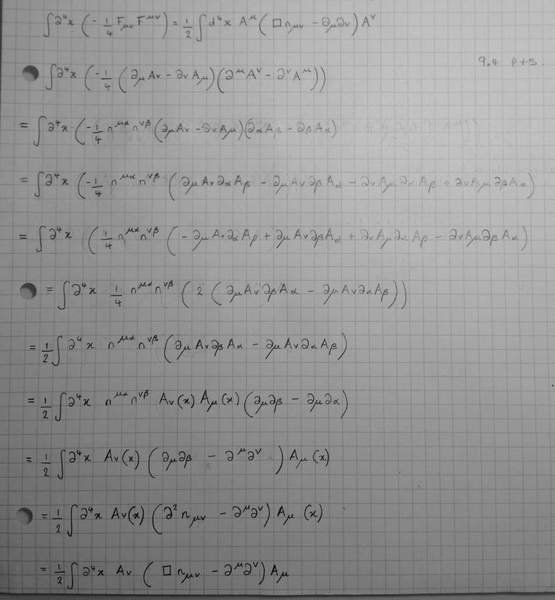 ∫∂⁴x (-1/4 F_μν F^μν) = 1/2 ∫d⁴x A^μ (□ η_μν - ∂_μ∂_ν) A^ν
9.4 P+S.
∫∂⁴x (-1/4 (∂_μ A_ν - ∂_ν A_μ)(∂^μ A^ν - ∂^ν A^μ))
= ∫∂⁴x (-1/4 η^μα η^νβ (∂_μ A_ν - ∂_ν A_μ)(∂_α A_β - ∂_β A_α)
= ∫∂⁴x (-1/4 η^μα η^νβ (∂_μ A_ν ∂_α A_β - ∂_μ A_ν ∂_β A_α - ∂_ν A_μ ∂_α A_β + ∂_ν A_μ ∂_β A_α)
= ∫∂⁴x (1/4 η^μα η^νβ (-∂_μ A_ν ∂_α A_β + ∂_μ A_ν ∂_β A_α + ∂_ν A_μ ∂_α A_β - ∂_ν A_μ ∂_β A_α)
= ∫∂⁴x 1/4 η^μα η^νβ (2 (∂_μ A_ν ∂_β A_α - ∂_μ A_ν ∂_α A_β))
= 1/2 ∫∂⁴x η^μα η^νβ (∂_μ A_ν ∂_β A_α - ∂_μ A_ν ∂_α A_β)
= 1/2 ∫∂⁴x η^μα η^νβ A_ν(x) A_μ(x) (∂_μ∂_β - ∂_μ∂_α)
= 1/2 ∫∂⁴x A_ν(x) (∂_μ∂_β - ∂^μ∂^ν) A_μ(x)
= 1/2 ∫∂⁴x A_ν(x) (∂² η_μν - ∂^μ∂^ν) A_μ (x)
= 1/2 ∫∂⁴x A_ν (□ η_μν - ∂^μ∂^ν) A_μ